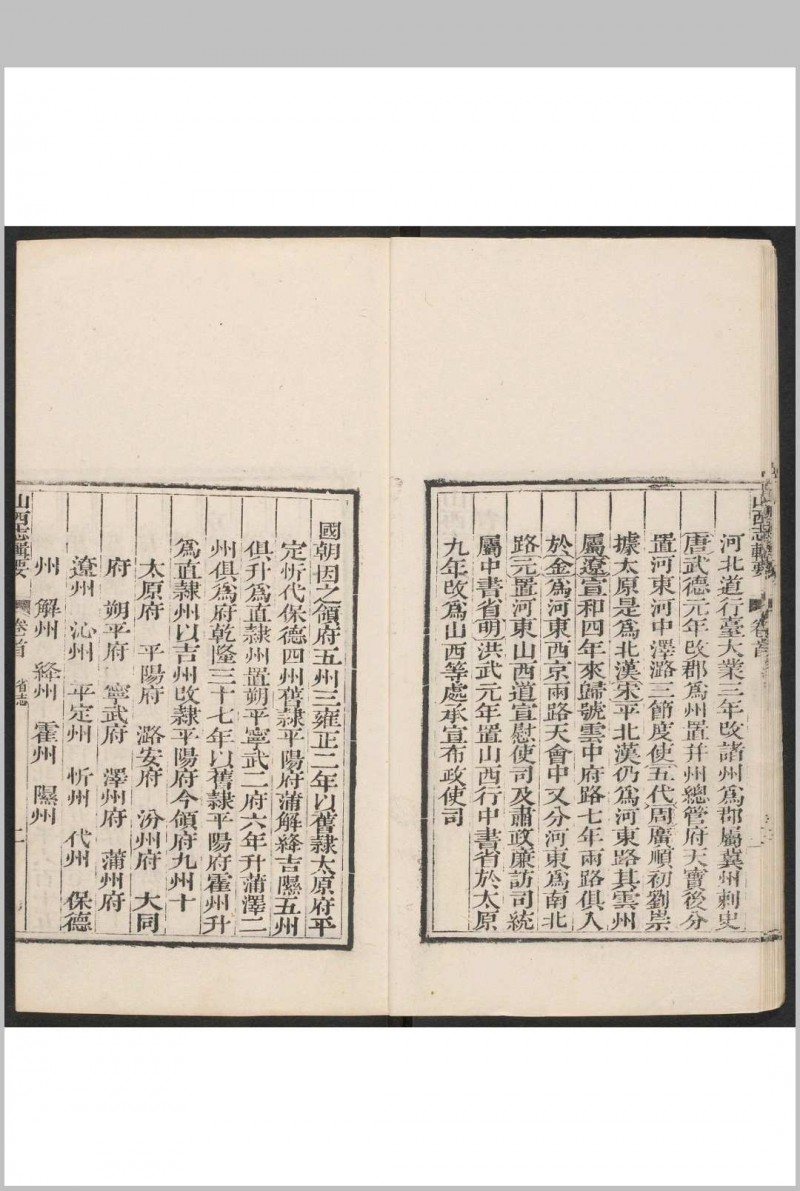 山西志輯要 卷首
河北道行臺大業三年改諸州爲郡屬冀州刺史
唐武德元年改郡爲州置幷州總管府天寶後分
置河東河中澤潞三節度使五代周廣順初劉崇
據太原是爲北漢宋平北漢仍爲河東路其雲州
屬遼宣和四年來歸號雲中府路七年兩路俱入
於金爲河東西京兩路天會中又分河東爲南北
路元置河東山西道宣慰使司及肅政廉訪司統
屬中書省明洪武元年置山西行中書省於太原
九年改爲山西等處承宣布政使司
國朝因之領府五州三雍正二年以舊隸太原府平
定忻代保德四州舊隸平陽府蒲解絳吉隰五州
俱升爲直隸州置朔平寧武二府六年升蒲澤二
州俱爲府乾隆三十七年以舊隸平陽府霍州升
爲直隸州以吉州改隸平陽府今領府九州十
太原府 平陽府 潞安府 汾州府 大同
府 朔平府 寧武府 澤州府 蒲州府
遼州 沁州 平定州 忻州 代州 保德
州 解州 絳州 霍州 隰州
山西志輯要 卷首 省志 二